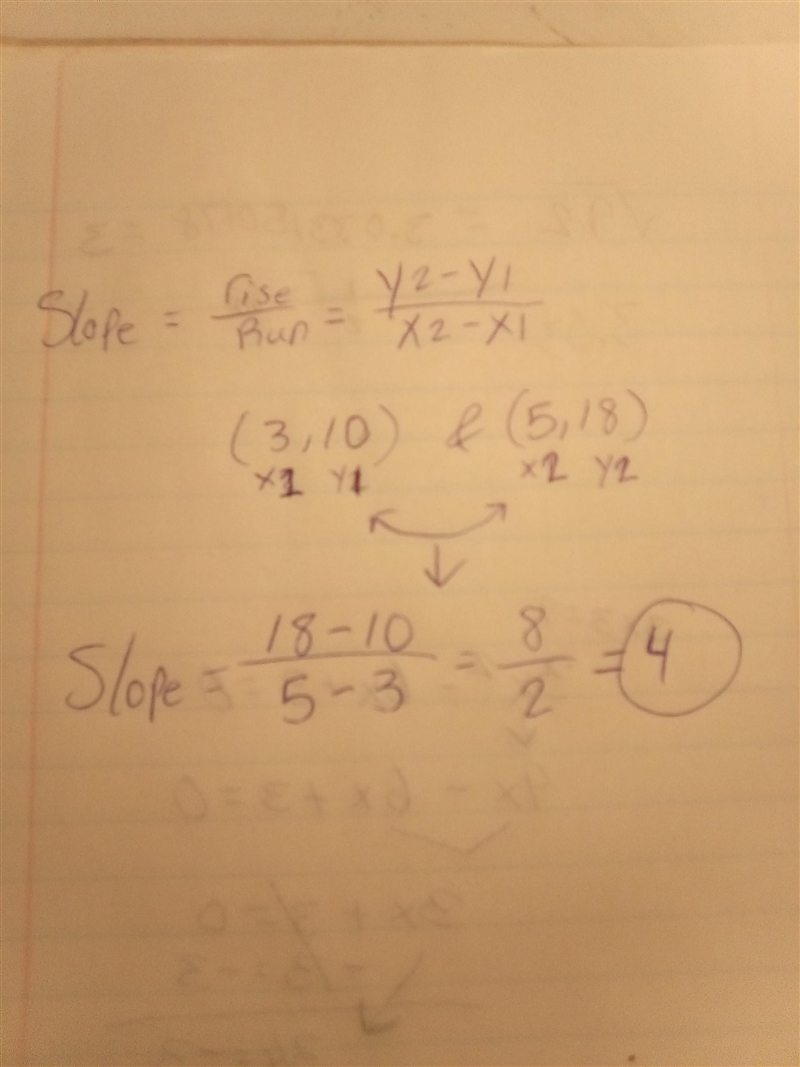 Slope = rise/Run = y2-y1/x2-x1
(3,10) & (5,18)
x1 y1 x2 y2
Slope = 18-10/5-3 = 8/2 = 4